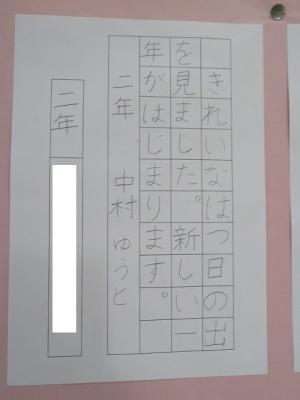 きれいなはつ日の出
を見ました。新しい一
年がはじまります。
二年 中村 ゆうと
二年